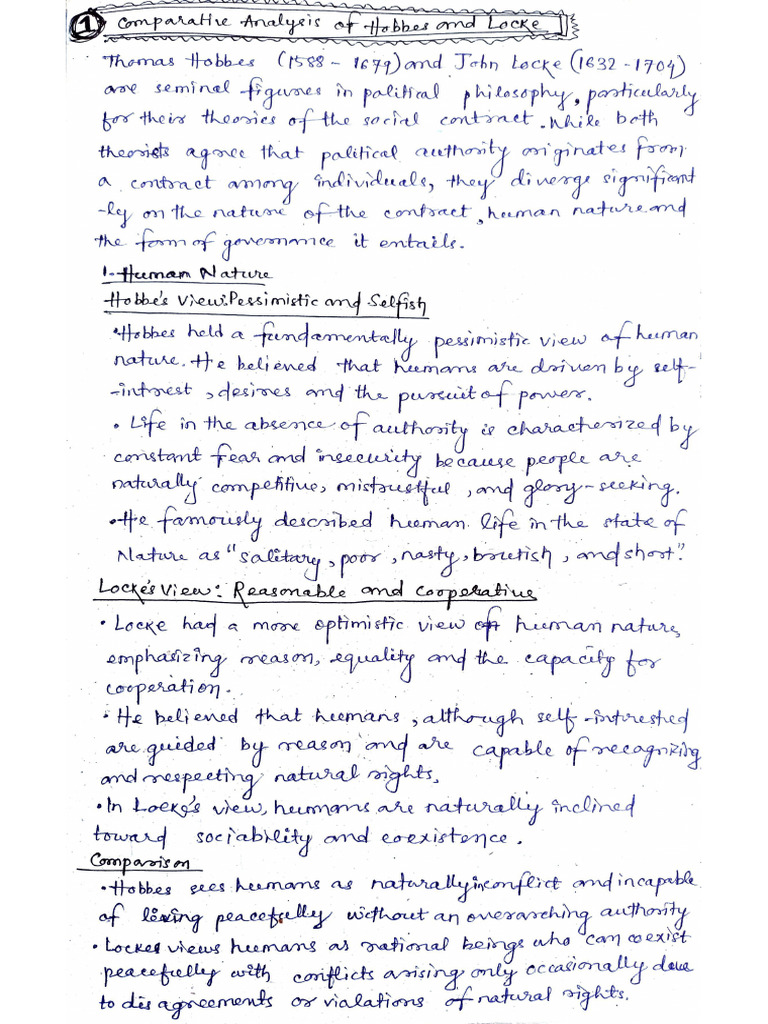 1 Comparative Analysis of Hobbes and Locke
Thomas Hobbes (1588 - 1679) and John Locke (1632 - 1704)
are seminal figures in political philosophy, particularly
for their theories of the social contract. While both
theorists agree that political authority originates from
a contract among individuals, they diverge significant
-ly on the nature of the contract, human nature and
the form of governance it entails.
1. Human Nature
Hobbe's View: Pessimistic and Selfish
• Hobbes held a fundamentally pessimistic view of human
nature. He believed that humans are driven by self-
-intrest, desires and the pursuit of power.
• Life in the absence of authority is characterized by
constant fear and insecurity because people are
naturally competitive, mistrustful, and glory-seeking.
• He famously described human life in the state of
Nature as "salitary, poor, nasty, brutish, and short".
Locke's View: Reasonable and Cooperative
• Locke had a more optimistic view of human nature,
emphasizing reason, equality and the capacity for
cooperation.
• He believed that humans, although self-intrested
are guided by reason and are capable of recognizing
and respecting natural rights.
• In Locke's view, humans are naturally inclined
toward sociability and coexistence.
Comparison
• Hobbes sees humans as naturally in conflict and incapable
of living peacefully without an overarching authority
• Locke views humans as rational beings who can coexist
peacefully with conflicts arising only occasionally due
to disagreements or violations of natural rights.